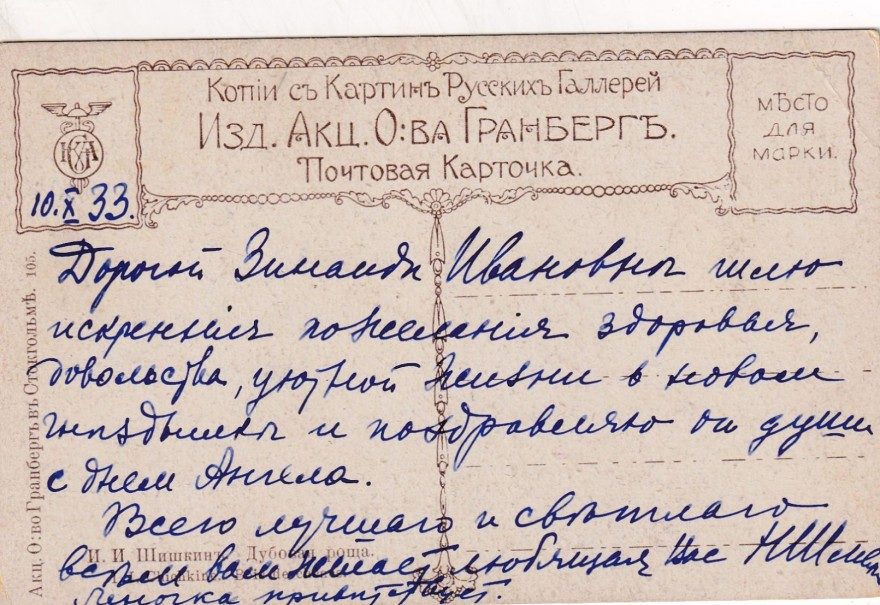 Копіи съ Картинъ Русскихъ Галлерей
Изд. Акц. О:ва Гранбергъ.
Почтовая Карточка.
мѣсто
для
марки.
10.X 33.
Дорогой Зинаиды Ивановны шлю
искреннія пожеланія здоровья,
довольства, уютной жизни в новом
гнѣздышке и поздравляю от души
с днем Ангела.
Всего лучшаго и свѣтлаго
всѣм вам желает любящая Вас
Леночка привѣтствует.
И. И. Шишкинъ. Дубовая роща.
Акц. О:во Гранбергъ въ Стокгольмѣ. 105.